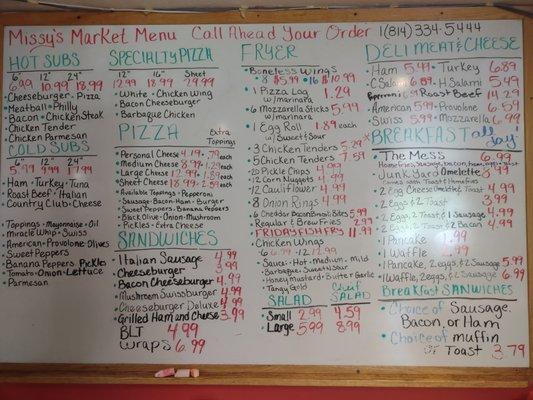 Missy's Market Menu Call Ahead Your Order 1(814) 334-5444
HOT SUBS
6" 12" 24"
6.99 10.99 18.99
Cheeseburger • Pizza
Meatball • Philly
Bacon • Chicken Steak
Chicken Tender
Chicken Parmesan
COLD SUBS
6" 12" 24"
5.99 9.99 17.99
Ham • Turkey • Tuna
Roast Beef • Italian
Country Club Cheese
Toppings • Mayonnaise • Oil
Miracle Whip • Swiss
American • Provolone • Olives
Sweet Peppers
Banana Peppers Pickles
Tomato • Onion • Lettuce
Parmesan
SPECIALTY PIZZA
12" 16" Sheet
12.99 18.99 24.99
White • Chicken Wing
Bacon Cheeseburger
Barbaque Chicken
PIZZA Extra Toppings
Personal Cheese 4.19 .79 each
Medium Cheese 8.99 1.29 each
Large Cheese 12.99 1.89 each
Sheet Cheese 18.99 2.59 each
Available Toppings • Pepperoni
Sausage • Bacon • Ham • Burger
Sweet Peppers • Banana Peppers
Black Olive • Onion • Mushroom
Pickles • Extra Cheese
SANDWICHES
Italian Sausage 4.99
Cheeseburger 3.99
Bacon Cheeseburger 4.99
Mushroom Swissburger 4.99
Cheeseburger Deluxe 4.99
Grilled Ham and Cheese 3.99
BLT 4.99
Wraps 6.99
FRYER
Boneless Wings
8 $5.99 16 $10.99
1 Pizza Log 1.29
w/marinara
6 Mozzarella Sticks 5.99
w/marinara
1 Egg Roll 1.89 each
w/Sweet & Sour
3 Chicken Tenders 5.29
5 Chicken Tenders 7.59
20 Pickle Chips
12 Corn Nuggets 4.99
12 Cauliflower 4.99
8 Onion Rings 4.99
6 Cheddar Bacon Broccoli Bites 5.99
Regular & Brew Fries 2.99
FRIDAY FISH FRY 11.99
Chicken Wings
6 6.99 • 12 12.99
Sauce • Hot • Medium • Mild
Barbaque • Sweet N Sour
Honey Mustard • Butter Garlic
Tangy Gold
SALAD Chef SALAD
Small 2.99 4.59
Large 5.99 8.99
DELI MEAT & CHEESE
Ham 5.49 • Turkey 6.89
C. Salami 6.89 H. Salami 5.49
Roast Beef 11.29
American 5.99 • Provolone 6.59
Swiss 5.99 • Mozzarella 6.99
BREAKFAST all day
The Mess 6.99
Junk Yard Omelette 8.99
2 Egg Cheese Omelette & Toast 4.99
2 Eggs & 2 Toast 3.99
2 Eggs, 2 Toast & 1 Sausage 4.99
2 Eggs, 2 Toast & 2 Bacon 4.99
1 Pancake 1.99
1 Waffle 4.99
1 Pancake 2 Eggs & 2 Sausage 5.99
1 Waffle, 2 eggs, & 2 Sausage 6.99
Breakfast SANWICHES
Choice of Sausage,
Bacon, or Ham
Choice of muffin
or Toast 3.79